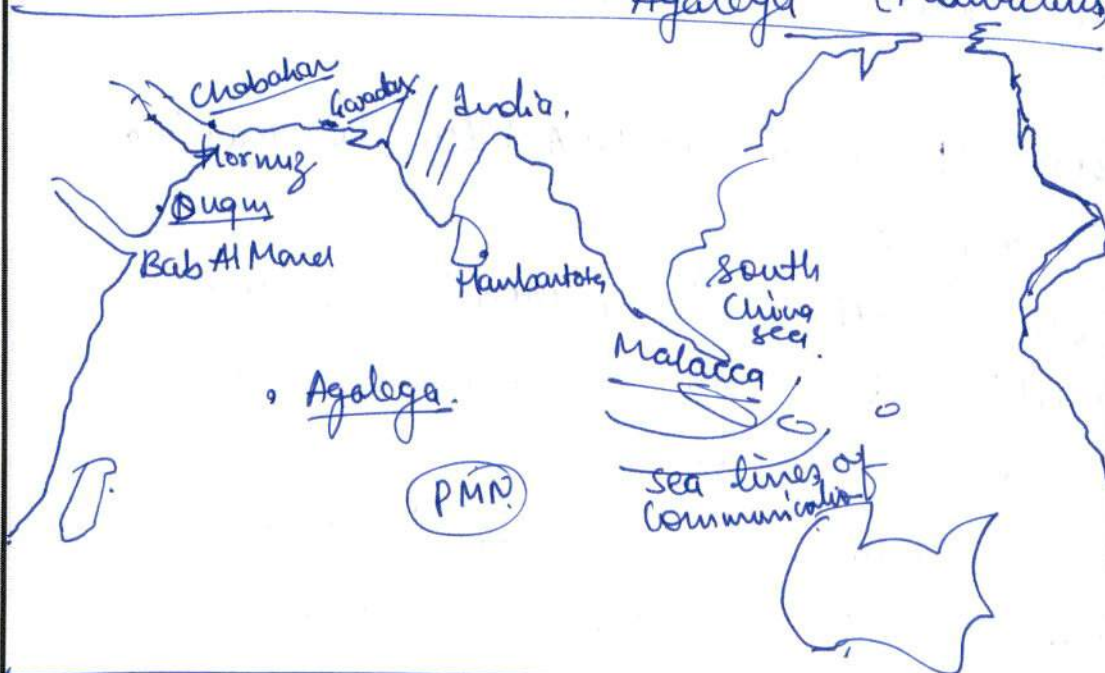 Agalega (Mauritius)
Chabahar
Gwadar
India.
Hormuz
Duqm
Bab Al Mand
Hambantota
south
China
sea.
Malacca
Agalega.
PMN.
sea lines of
Communicatio